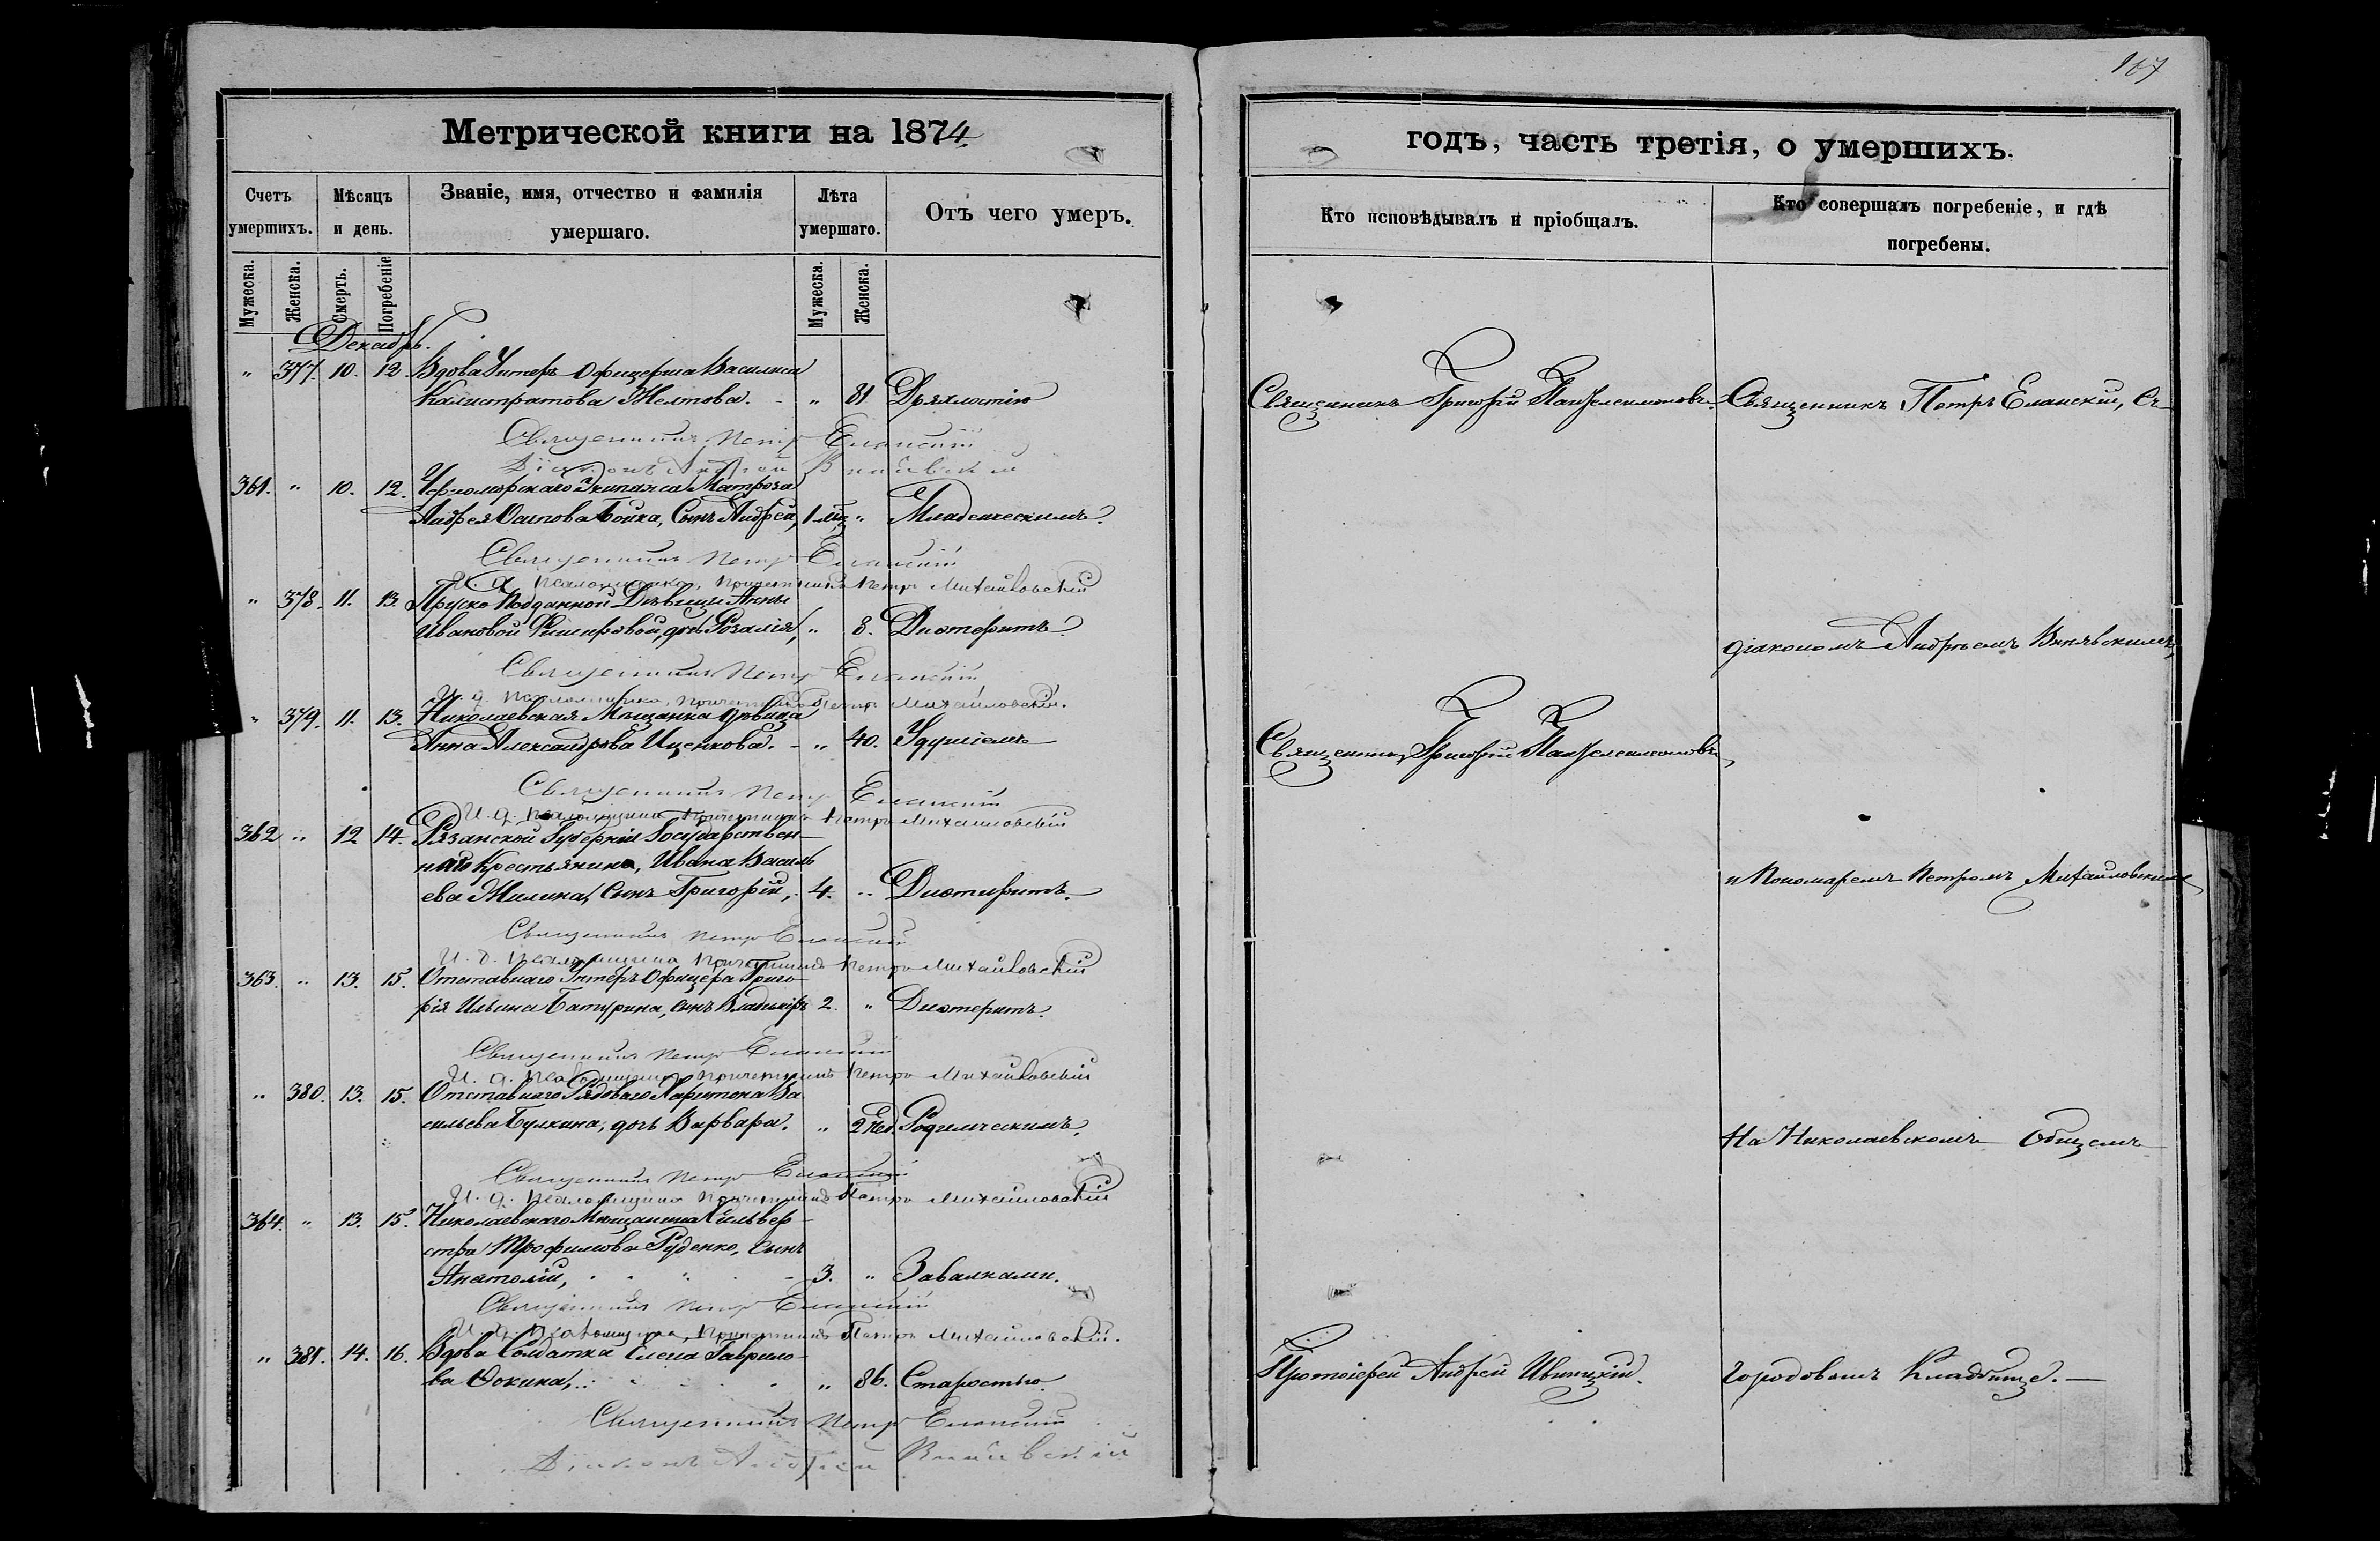 167
Метрической книги на 1874
годъ, часть третія, о умершихъ.
Счетъ умершихъ.
Мѣсяцъ и день.
Званіе, имя, отчество и фамилія умершаго.
Лѣта умершаго.
Отъ чего умеръ.
Кто исповѣдывалъ и пріобщалъ.
Кто совершалъ погребеніе, и гдѣ погребены.
Мужеска.
Женска.
Смерть.
Погребеніе
Мужеска.
Женска.
Декабрь.
" 377. 10. 12. Вдова Унтеръ Офицерша Василиса
Калистратова Желтова. - " 81 Дряхлостію
Священникъ Григорій Пантелеимоновъ.
Священникъ Петръ Еланскій, съ
Священникъ Петръ Еланскій
Діаконъ Андрей
361. " 10. 12. Черноморскаго Экипажа Матроза
Андрея Осипова Бойка, Сынъ Андрей, 1 мц. " Младенческимъ.
Священникъ Петръ Еланскій
И. д. псаломщика, причетникъ Петръ Михайловскій
" 378. 11. 13. Пруско Подданной Дѣвицы Анны
Ивановой дочь Розалія, " 8. Диѳтеритъ.
діакономъ Андреемъ
Священникъ Петръ Еланскій
И. д. псаломщика, причетникъ Петръ Михайловскій.
" 379. 11. 13. Николаевская Мѣщанка дѣвица
Анна Александрова Ищенкова. - " 40. Удушіемъ
Священникъ Григорій Пантелеимоновъ,
Священникъ Петръ Еланскій
И. д. псаломщика причетникъ Петръ Михайловскій
362 " 12 14. Рязанской Губерніи Государствен-
наго Крестьянина, Ивана Василь
ева Жилина, Сынъ Григорій, 4. " Диѳтеритъ.
и Пономаремъ Петромъ Михайловскимъ
Священникъ Петръ Еланскій
И. д. псаломщика причетникъ Петръ Михайловскій
363. " 13. 15. Отставнаго Унтеръ Офицера Григо-
рія Ильина Батурина, сынъ Владиміръ 2. " Диѳтеритъ.
Священникъ Петръ Еланскій
И. д. псаломщика причетникъ Петръ Михайловскій
" 380. 13. 15. Отставнаго Рядоваго Харитона Ва
сильева Булкина, дочь Варвара. " 2 нед. Родимческимъ.
На Николаевскомъ Общемъ
Священникъ Петръ Еланскій
И. д. псаломщика причетникъ Петръ Михайловскій
364. " 13. 15. Николаевскаго Мѣщанина Сильвер-
стра Трофимова Руденко, сынъ
Анатолій, - 3. " Завалками.
Священникъ Петръ Еланскій
И. д. псаломщика, причетникъ Петръ Михайловскій.
" 381. 14. 16. Вдова Солдатка Елена Гаврило-
ва " 86. Старостью.
Протоіерей Андрей
Городовомъ Кладбище. —
Священникъ Петръ Еланскій
Діаконъ Андрей